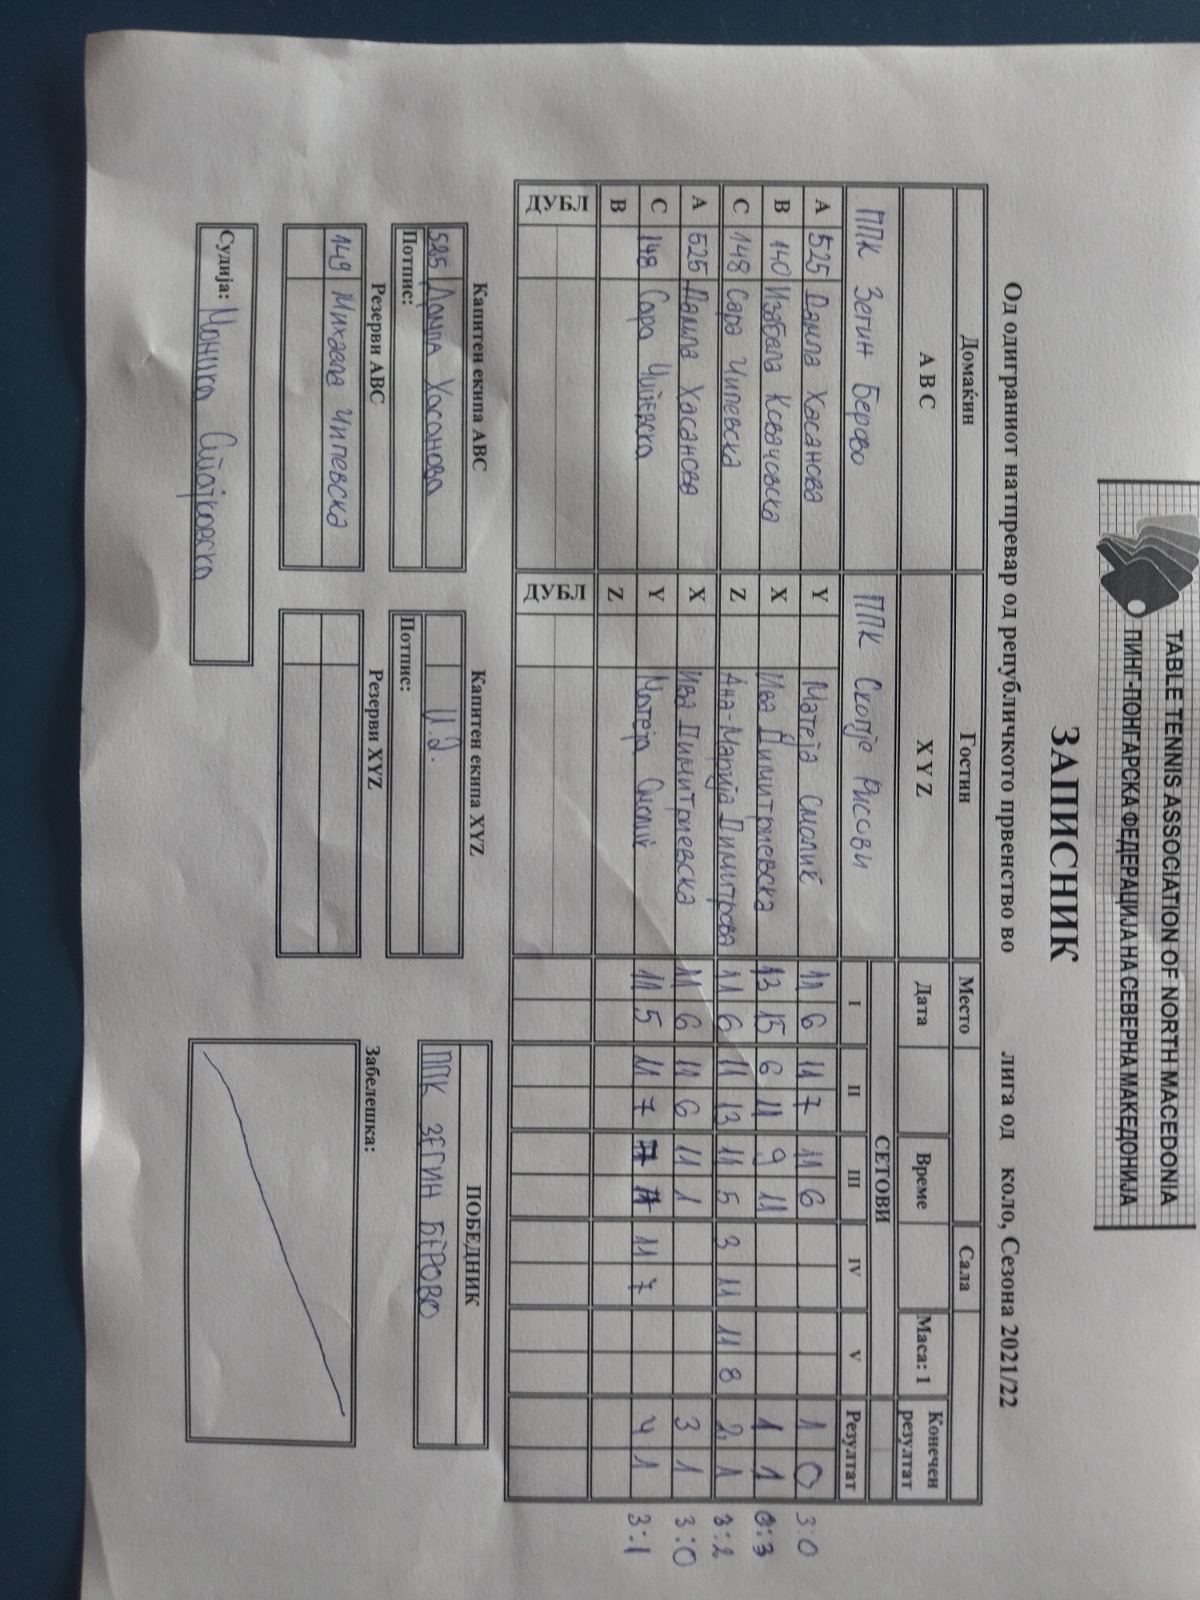 TABLE TENNIS ASSOCIATION OF NORTH MACEDONIA
ПИНГ-ПОНГАРСКА ФЕДЕРАЦИЈА НА СЕВЕРНА МАКЕДОНИЈА
ЗАПИСНИК
Од одиграниот натпревар од републичкото првенство во лига од коло, Сезона 2021/22
Домаќин Гостин Место Сала
A B C X Y Z Дата Време Маса: 1 Конечен резултат
ППК Зегин Берово ППК Скопје Рисови СЕТОВИ
I II III IV V Резултат
A 525 Дамла Хасанова Y Матеја Смолиќ 11 6 11 7 11 6 1 0 3:0
B 140 Изабела Ковачовска X Ива Димитриевска 13 15 6 11 9 11 1 1 0:3
C 148 Сара Чипевска Z Ана-Марија Димитрова 11 6 11 13 11 5 3 11 11 8 2 1 3:2
A 525 Дамла Хасанова X Ива Димитриевска 11 6 11 6 11 1 3 1 3:0
C 148 Сара Чипевска Y Матеја Смолиќ 11 5 11 7 11 7 4 1 3:1
B Z
ДУБЛ ДУБЛ
Капитен екипа ABC Капитен екипа XYZ ПОБЕДНИК
525 Дамла Хасанова И.Д. ППК ЗЕГИН БЕРОВО
Потпис: Потпис:
Резерви ABC Резерви XYZ Забелешка:
149 Михаела Чипевска
Судија: Моника Стојковска